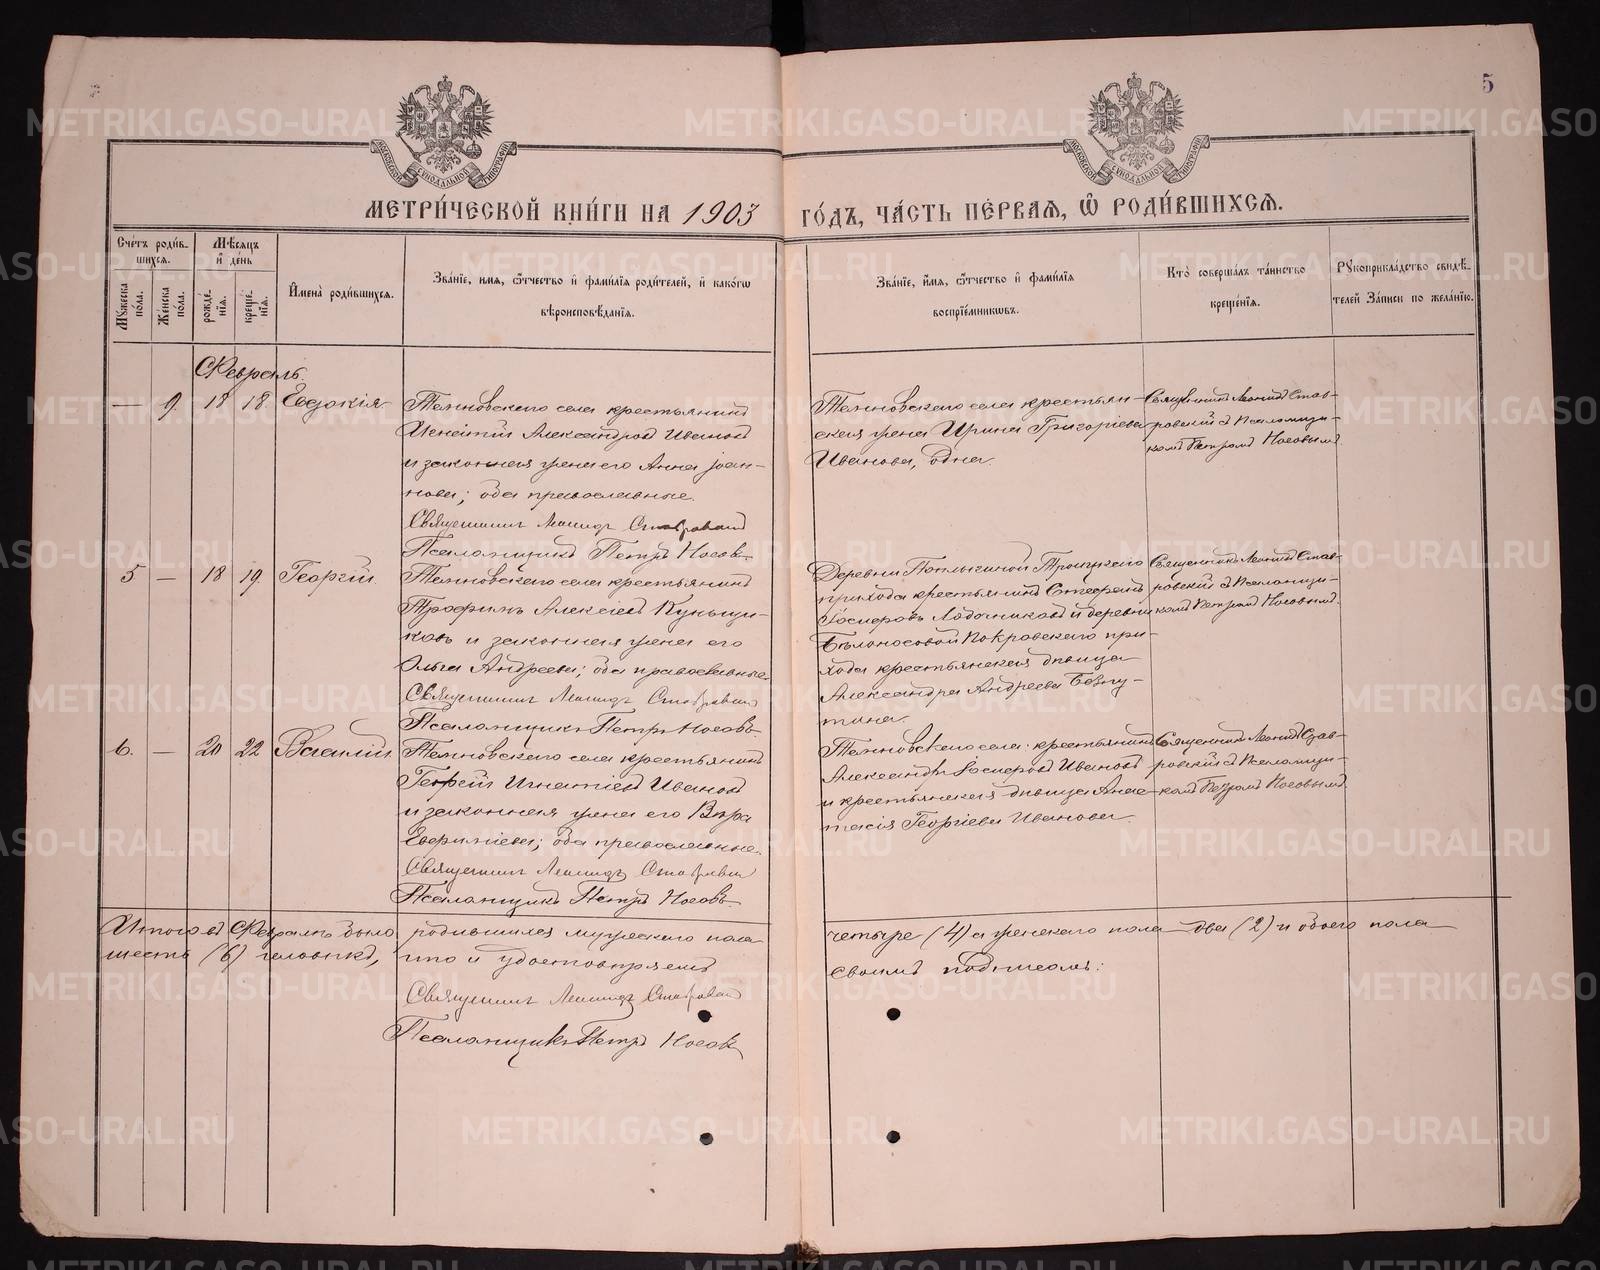 5
МОСКОВСКОЙ СѴНОДАЛЬНОЙ ТИПОГРАФІИ
МОСКОВСКОЙ СѴНОДАЛЬНОЙ ТИПОГРАФІИ
МЕТРИ́ЧЕСКОЙ КНИ́ГИ НА 1903 ГО́ДЪ, ЧА́СТЬ ПЕ́РВАЯ, Ѿ РОДИ́ВШИХСЯ.
Сче́тъ роди́вшихся.
Му́жеска по́ла.
Же́нска по́ла.
Мѣ́сяцъ и де́нь
рожде́нїя.
креще́нїя.
Имена̀ роди́вшихся.
Зва́нїе, имя, ѻтчество и фами́лїя роди́телей, и како́гѡ
вѣроисповѣ́данїя.
Зва́нїе, имя, ѻтчество и фами́лїя
воспрїе́мникѡвъ.
Кто̀ соверша́лъ та́инство
креще́нїя.
Рукоприкла́дство свидѣ́-
телей За́писи по жела́нїю.
Февраль.
— 9. 18 18. Евдокія
Темновскаго села крестьянинъ
Игнатій Александровъ Ивановъ
и законная жена его Анна Іоан-
нова; оба православные.
Священникъ Леонидъ Ставровскій
Псаломщикъ Петръ Носовъ
Темновскаго села крестьян-
ская жена Ирина Григоріева
Иванова, одна.
Священникъ Леонидъ Став-
ровскій съ Псаломщи-
комъ Петромъ Носовымъ.
5 — 18 19. Георгій
Темновскаго села крестьянинъ
Трофимъ Алексіевъ Куньщи-
ковъ и законная жена его
Ольга Андреева; оба православные.
Священникъ Леонидъ Ставровскій
Псаломщикъ Петръ Носовъ
Деревни Троицкаго
прихода крестьянинъ Стефанъ
Ладочниковъ и деревни
Бѣлоносовой Покровскаго при-
хода крестьянская дѣвица
Александра Андреева
Священникъ Леонидъ Став-
ровскій съ Псаломщи-
комъ Петромъ Носовымъ.
6. — 20 22 Василій
Темновскаго села крестьянинъ
Георгій Игнатіевъ Ивановъ
и законная жена его Вѣра
оба православные.
Священникъ Леонидъ Ставровскій
Псаломщикъ Петръ Носовъ
Темновскаго села крестьянинъ
Александръ Ивановъ
и крестьянская дѣвица Анас-
тасія Георгіева Иванова.
Священникъ Леонидъ Став-
ровскій съ Псаломщи-
комъ Петромъ Носовымъ
Итого въ Февралѣ было родившихся мужескаго пола четыре (4) а женскаго пола два (2) и обоего пола
шесть (6) человѣкъ, что и удостовѣряемъ своимъ подписомъ:
Священникъ Леонидъ Ставровскій
Псаломщикъ Петръ Носовъ
METRIKI.GASO-URAL.RU